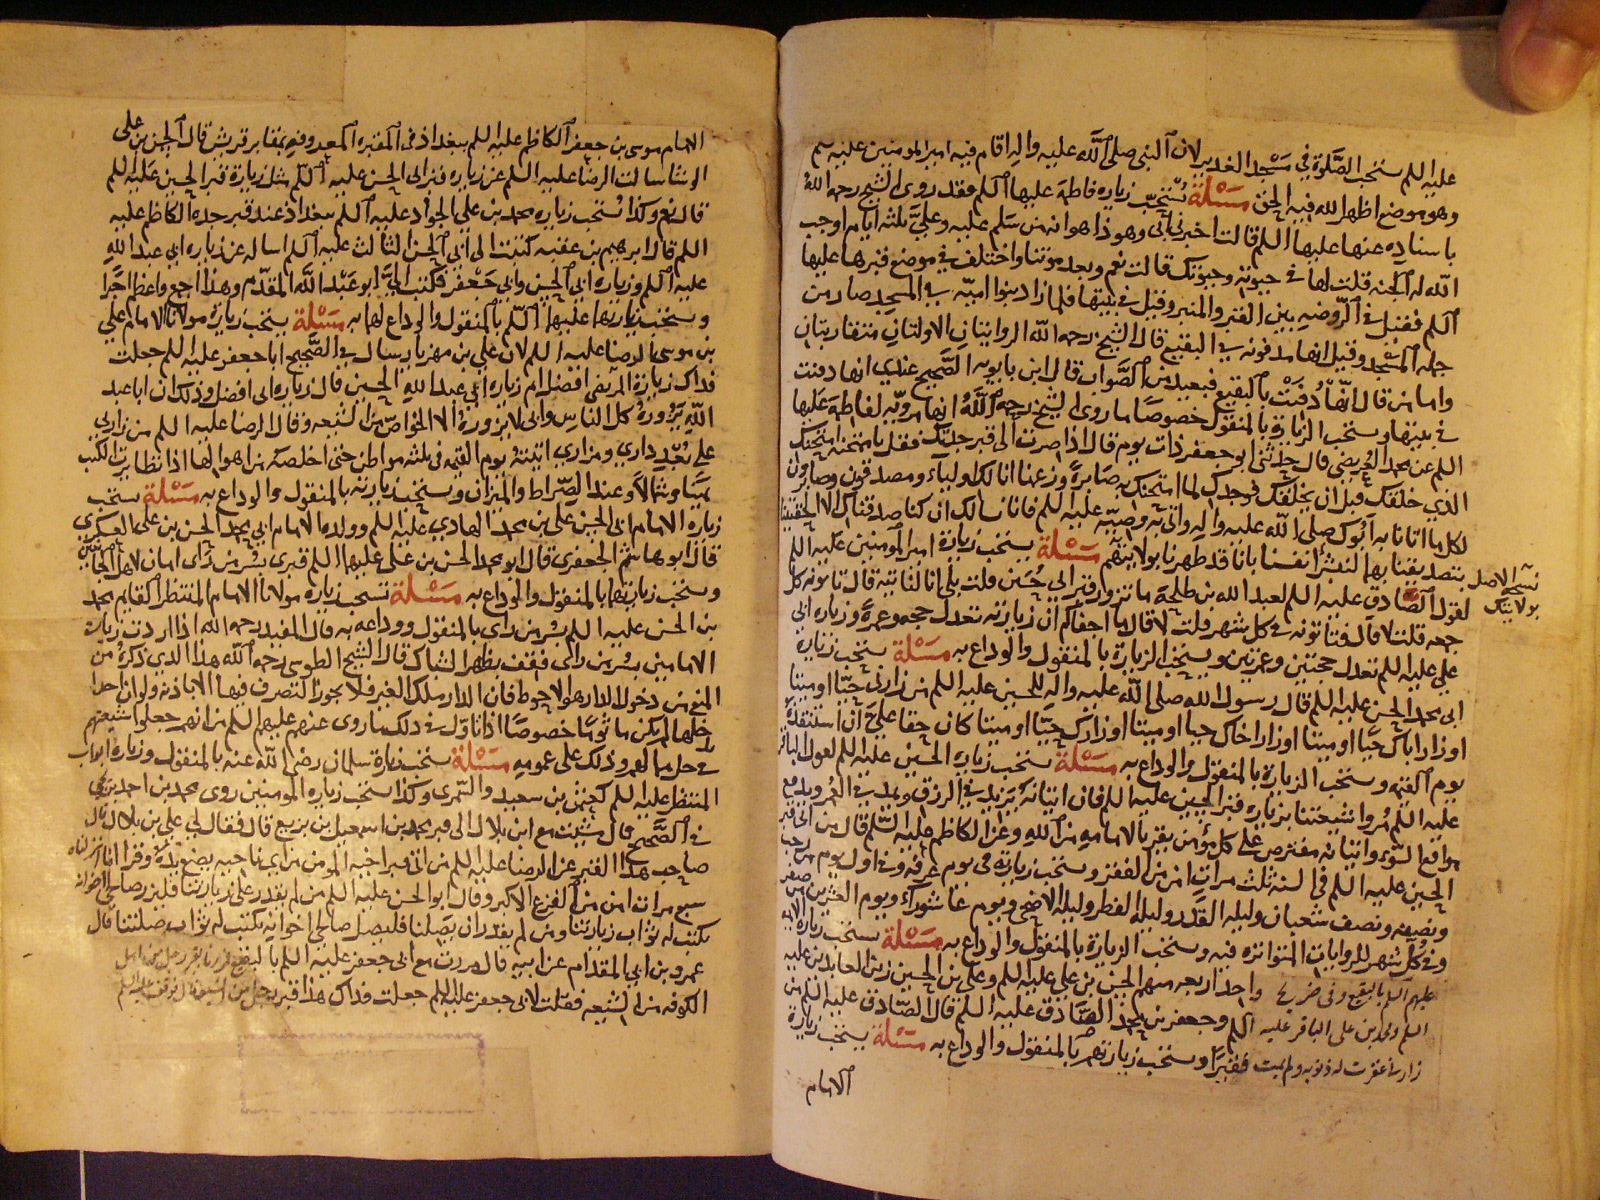 عليه السلم يستحب الصلوة في مسجد الغدير لان النبي صلى الله عليه واله اقام فيه امير المؤمنين عليه سلم
وهو موضع اظهر الله فيه الحق مسئلة تستحب زيارة فاطمة عليها السلم فقد روى الشيخ رحمه الله
باسناده عنها عليها السلم قالت اخبرني ابي وهو ذا هو انه من سلم عليه وعلي ثلثه ايام اوجب
الله له الجنه قلت لها في حيوته وحيوتك قالت نعم وبعد موتنا واختلف في موضع قبرها عليها
السلم فقيل في الروضه بين القبر والمنبر وقيل في بيتها فلما زاد بنوا اميه في المسجد صار من
جمله المسجد وقيل انها مدفونه في البقيع قال الشيخ رحمه الله الروايتان الاولتان متقاربتان
واما من قال انها دفنت بالبقيع فبعيد من الصواب قال ابن بابويه الصحيح عندي انها دفنت
في بيتها ويستحب الزيارة بالمنقول خصوصا ما روى الشيخ رحمه الله انها مرويه لفاطمة عليها
السلم عن محمد العريضي قال حدثني ابو جعفر ذات يوم قال اذا صرت الى قبر جدتك فقل يا ممتحنه امتحنك
الذي خلقك قبل ان يخلقك فوجدك لما امتحنك به صابرة وزعمنا انا لك اولياء ومصدقون وصابرون
لكل ما اتانا به ابوك صلى الله عليه واله واتى به وصيه عليه السلم فانا نسالك ان كنا صدقناك الا الحقتينا
بتصديقنا بهما لنبشر انفسنا بانا قد طهرنا بولايتهم مسئلة يستحب زيارة امير المؤمنين عليه السلم
نسخه الاصل
بولايتك
لقول الصادق عليه السلم لعبد الله بن طلحة ما تزور قبر ابي حسين قلت بلى انا لناتيه قال تاتونه كل
جمعه قلت لا قال فتاتونه في كل شهر قلت لا قال ما اجفاكم ان زيارته تعدل حجه وعمرة وزيارة ابي
علي عليه السلم تعدل حجتين وعمرتين ويستحب الزيارة بالمنقول والوداع به مسئلة يستحب زيارة
ابي محمد الحسن عليه السلم قال رسول الله صلى الله عليه واله للحسين عليه السلم من زارني حيا او ميتا
او زار اباك حيا او ميتا او زار اخاك حيا او ميتا او زارك حيا او ميتا كان حقا علي ان استنقذه
يوم القيمه ويستحب الزيارة بالمنقول والوداع به مسئلة يستحب زيارة الحسين عليه السلم لقول الباقر
عليه السلم مروا شيعتنا بزيارة قبر الحسين عليه السلم فان اتيانه يزيد في الرزق ويمد في العمر ويدفع
مواقع السوء واتيانه مفترض على كل مؤمن يقر بالامامه من الله وعن الكاظم عليه السلم قال من اتى قبر
الحسين عليه السلم في السنه ثلث مرات امن من الفقر ويستحب زيارته في يوم عرفه وفي اول يوم من رجب
ونصفه ونصف شعبان وليله القدر وليلة الفطر وليله الاضحى ويوم عاشوراء ويوم العشرين من صفر
وفي كل شهر للروايات المتواتره فيه ويستحب الزيارة بالمنقول والوداع به مسئلة يستحب زيارة الايمه
عليهم السلم بالبقيع وفي ضريح واحد اربعه منهم الحسن بن علي عليه السلم وعلي بن الحسين زين العابدين عليه
السلم ومحمد بن علي الباقر عليه السلم وجعفر بن محمد الصادق عليه السلم قال الصادق عليه السلم من
زارني غفرت له ذنوبه ولم يمت فقيرا ويستحب زيارتهم بالمنقول والوداع به مسئلة يستحب زيارة
الامام
الامام موسى بن جعفر الكاظم عليه السلم ببغداد في المقبره المعروفه بمقابر قريش قال الحسن بن علي
الوشا سالت الرضا عليه السلم عن زياره قبر ابي الحسن عليه السلم مثل زيارة قبر الحسين عليه السلم
قال نعم وكذا يستحب زياره محمد بن علي الجواد عليه السلم ببغداد عند قبر جده الكاظم عليه
السلم قال ابرهيم بن عقبه كتبت الى ابي الحسن الثالث عليه السلم اساله عن زياره ابي عبد الله
عليه السلم وزيارة ابي الحسن وابي جعفر فكتب الي ابو عبد الله المقدم وهذا اجمع واعظم اجرا
ويستحب زيارتهما عليهما السلم بالمنقول والوداع لهما به مسئلة يستحب زيارة مولانا الامام علي
بن موسى الرضا عليه السلم لان علي بن مهزيار سال في الصحيح ابا جعفر عليه السلم جعلت
فداك زيارة الرضا افضل ام زيارة ابي عبد الله الحسين قال زيارة ابي افضل وذلك ان ابا عبد
الله يزوره كل الناس وابي لا يزوره الا الخواص من الشيعه وقال الرضا عليه السلم من زارني
على بعد داري ومزاري اتيته يوم القيمه في ثلثه مواطن حتى اخلصه من اهوالها اذا تطايرت الكتب
يمينا وشمالا وعند الصراط والميزان ويستحب زيارته بالمنقول والوداع به مسئلة يستحب
زيارة الامام ابي الحسن علي بن محمد الهادي عليه السلم وولده الامام ابي محمد الحسن بن علي العسكري
قال ابو هاشم الجعفري قال ابو محمد الحسن بن علي عليهما السلم قبري بسر من راى امان لاهل الجانبين
ويستحب زيارتهما بالمنقول والوداع به مسئلة تستحب زيارة مولانا الامام المنتظر القايم محمد
بن الحسن عليه السلم بسر من راى بالمنقول ووداعه به قال المفيد رحمه الله اذا اردت زيارت
الامامين بسر من راى فقف بظاهر الشباك قال الشيخ الطوسي رحمه الله هذا الذي ذكره من
المنع من دخول الدار هو الاحوط فان الدار ملك الغير فلا يجوز التصرف فيها الا باذنه ولو ان احدا
دخلها لم يكن ماثوما خصوصا اذا تاول في ذلك ما روى عنهم عليهم السلم من انهم جعلوا شيعتهم
في حل من مالهم وذلك على عمومه مسئلة يستحب زيارة سلمان رضي الله عنه بالمنقول وزيارة ابواب
المنتظر عليه السلم كعثمن بن سعيد والعمري وكذا يستحب زياره المومنين روى محمد بن احمد بن يحيى
في الصحيح قال مشيت مع ابن بلال الى قبر محمد بن اسمعيل بن بزيع قال فقال لي علي بن بلال قال
صاحب هذا القبر عن الرضا عليه السلم من اتى قبر اخيه المومن من اي ناحيه يضع يده وقرا انا انزلناه
سبع مرات امن من الفزع الاكبر وقال ابو الحسن عليه السلم من لم يقدر على زيارتنا فليزر صالحي اخوانه
يكتب له ثواب زيارتنا ومن لم يقدر ان يصلنا فليصل صالحي اخوانه يكتب له ثواب صلتنا قال
عمرو بن ابي المقدام عن ابيه قال مررت مع ابي جعفر عليه السلم بالبقيع فمررنا بقبر رجل من اهل
الكوفه من الشيعه فقلت لابي جعفر عليه السلم جعلت فداك هذا قبر رجل من الشيعة قال فوقف عليه السلم